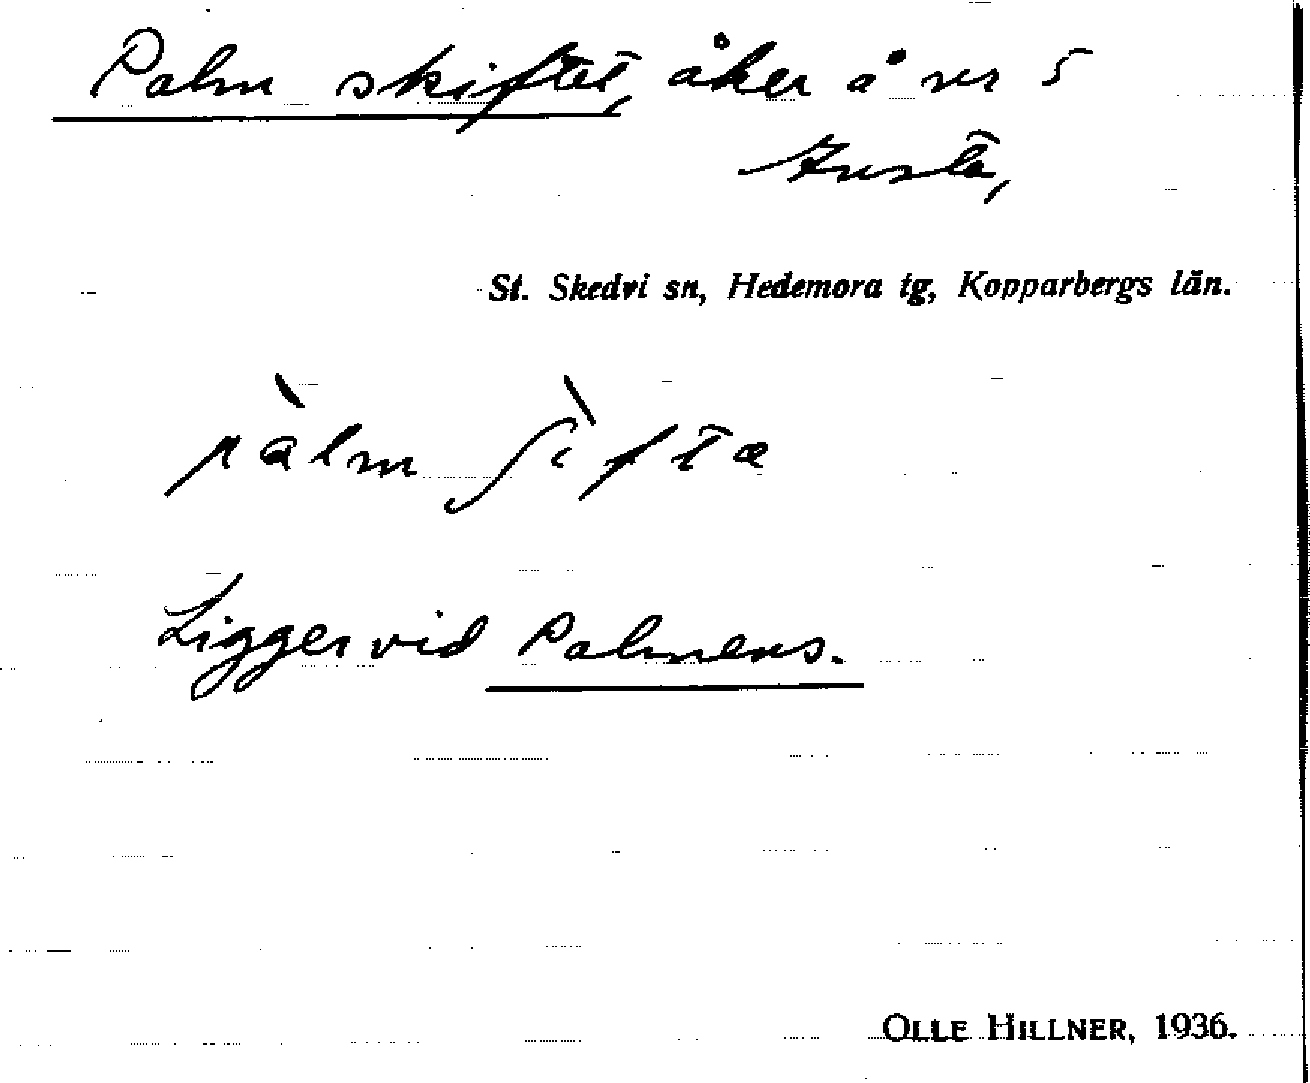 Palm skiftet, åker å ner 5
St. Skedvi sn, Hedemora tg, Kopparbergs län.
pàlm ʃìfta
Ligger vid Palmens.
OLLE HILLNER, 1936.